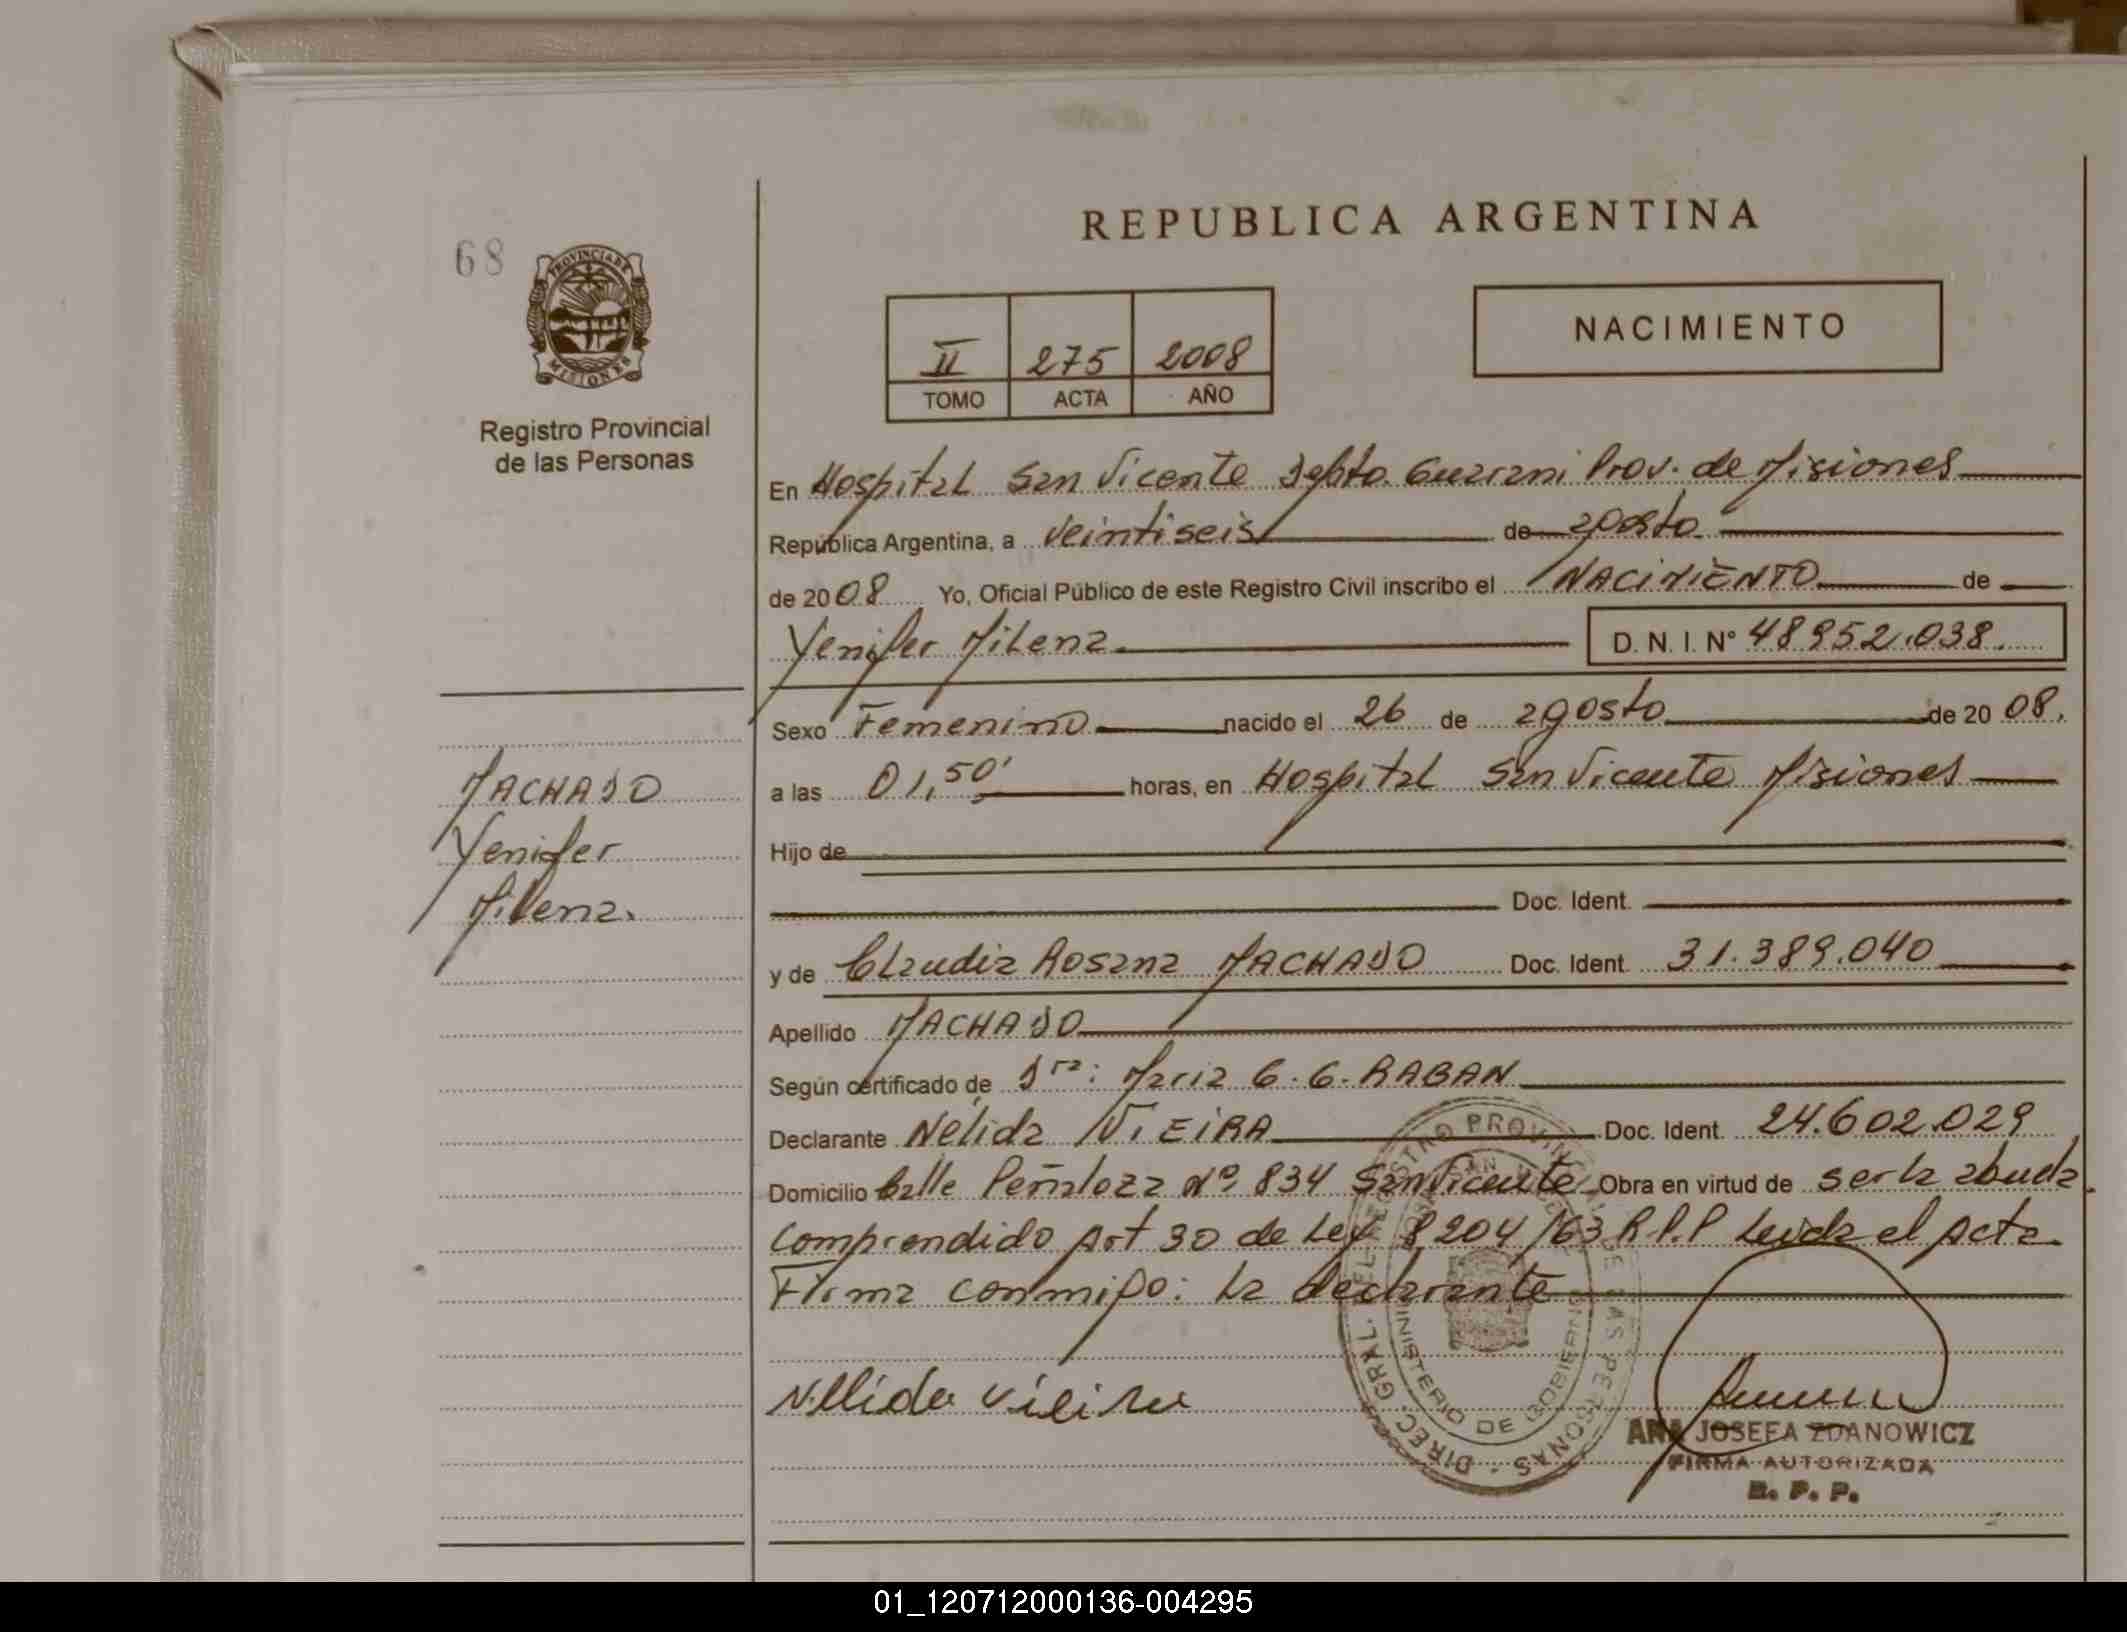 REPUBLICA ARGENTINA
68
PROVINCIA DE
MISIONES
Registro Provincial
de las Personas
II 275 2008
TOMO ACTA AÑO
NACIMIENTO
En Hospital San Vicente Depto. Guarani Prov. de Misiones
República Argentina, a veintiseis de agosto
de 2008 Yo, Oficial Público de este Registro Civil inscribo el NACIMIENTO de
Yenifer Milena D. N. I. N° 48952.038.
Sexo Femenino nacido el 26 de agosto de 2008.
a las 01,50' horas, en Hospital San Vicente Misiones
Hijo de
Doc. Ident.
y de Claudia Rosana MACHADO Doc. Ident. 31.389.040
Apellido MACHADO
Según certificado de Dra: Maria G. G. RABAN
Declarante Nélida VIEIRA Doc. Ident. 24.602.029
Domicilio Calle Peñaloza Nº 834 San Vicente Obra en virtud de ser la abuela
Comprendido Art 30 de Ley 8204/63 R.P.P Leida el Acta.
Firma conmigo: la declarante
MACHADO
Yenifer
Milena.
Nellida Vieira
DIREC. GRAL. DEL REGISTRO PROVINCIAL DE LAS PERSONAS
MINISTERIO DE GOBIERNO
ANA JOSEFA ZDANOWICZ
FIRMA AUTORIZADA
R. P. P.
01_120712000136-004295